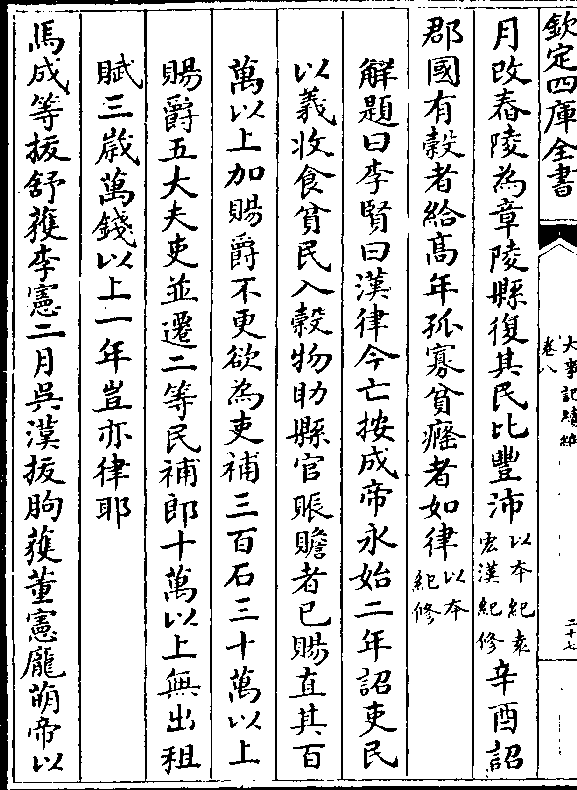 欽定四庫全書
大事記續編
卷八
二十七
月改舂陵為章陵縣復其民比豐沛以本紀袁宏漢紀修辛酉詔
郡國有穀者給高年孤寡貧癃者如律以本紀修
解題曰李賢曰漢律今亡按成帝永始二年詔吏民
以義收食貧民入穀物助縣官賑贍者已賜直其百
萬以上加賜爵不更欲為吏補三百石三十萬以上
賜爵五大夫吏並遷二等民補郎十萬以上無出租
賦三歲萬錢以上一年豈亦律耶
馬成等拔舒獲李憲二月吳漢拔朐獲董憲龐萌帝以